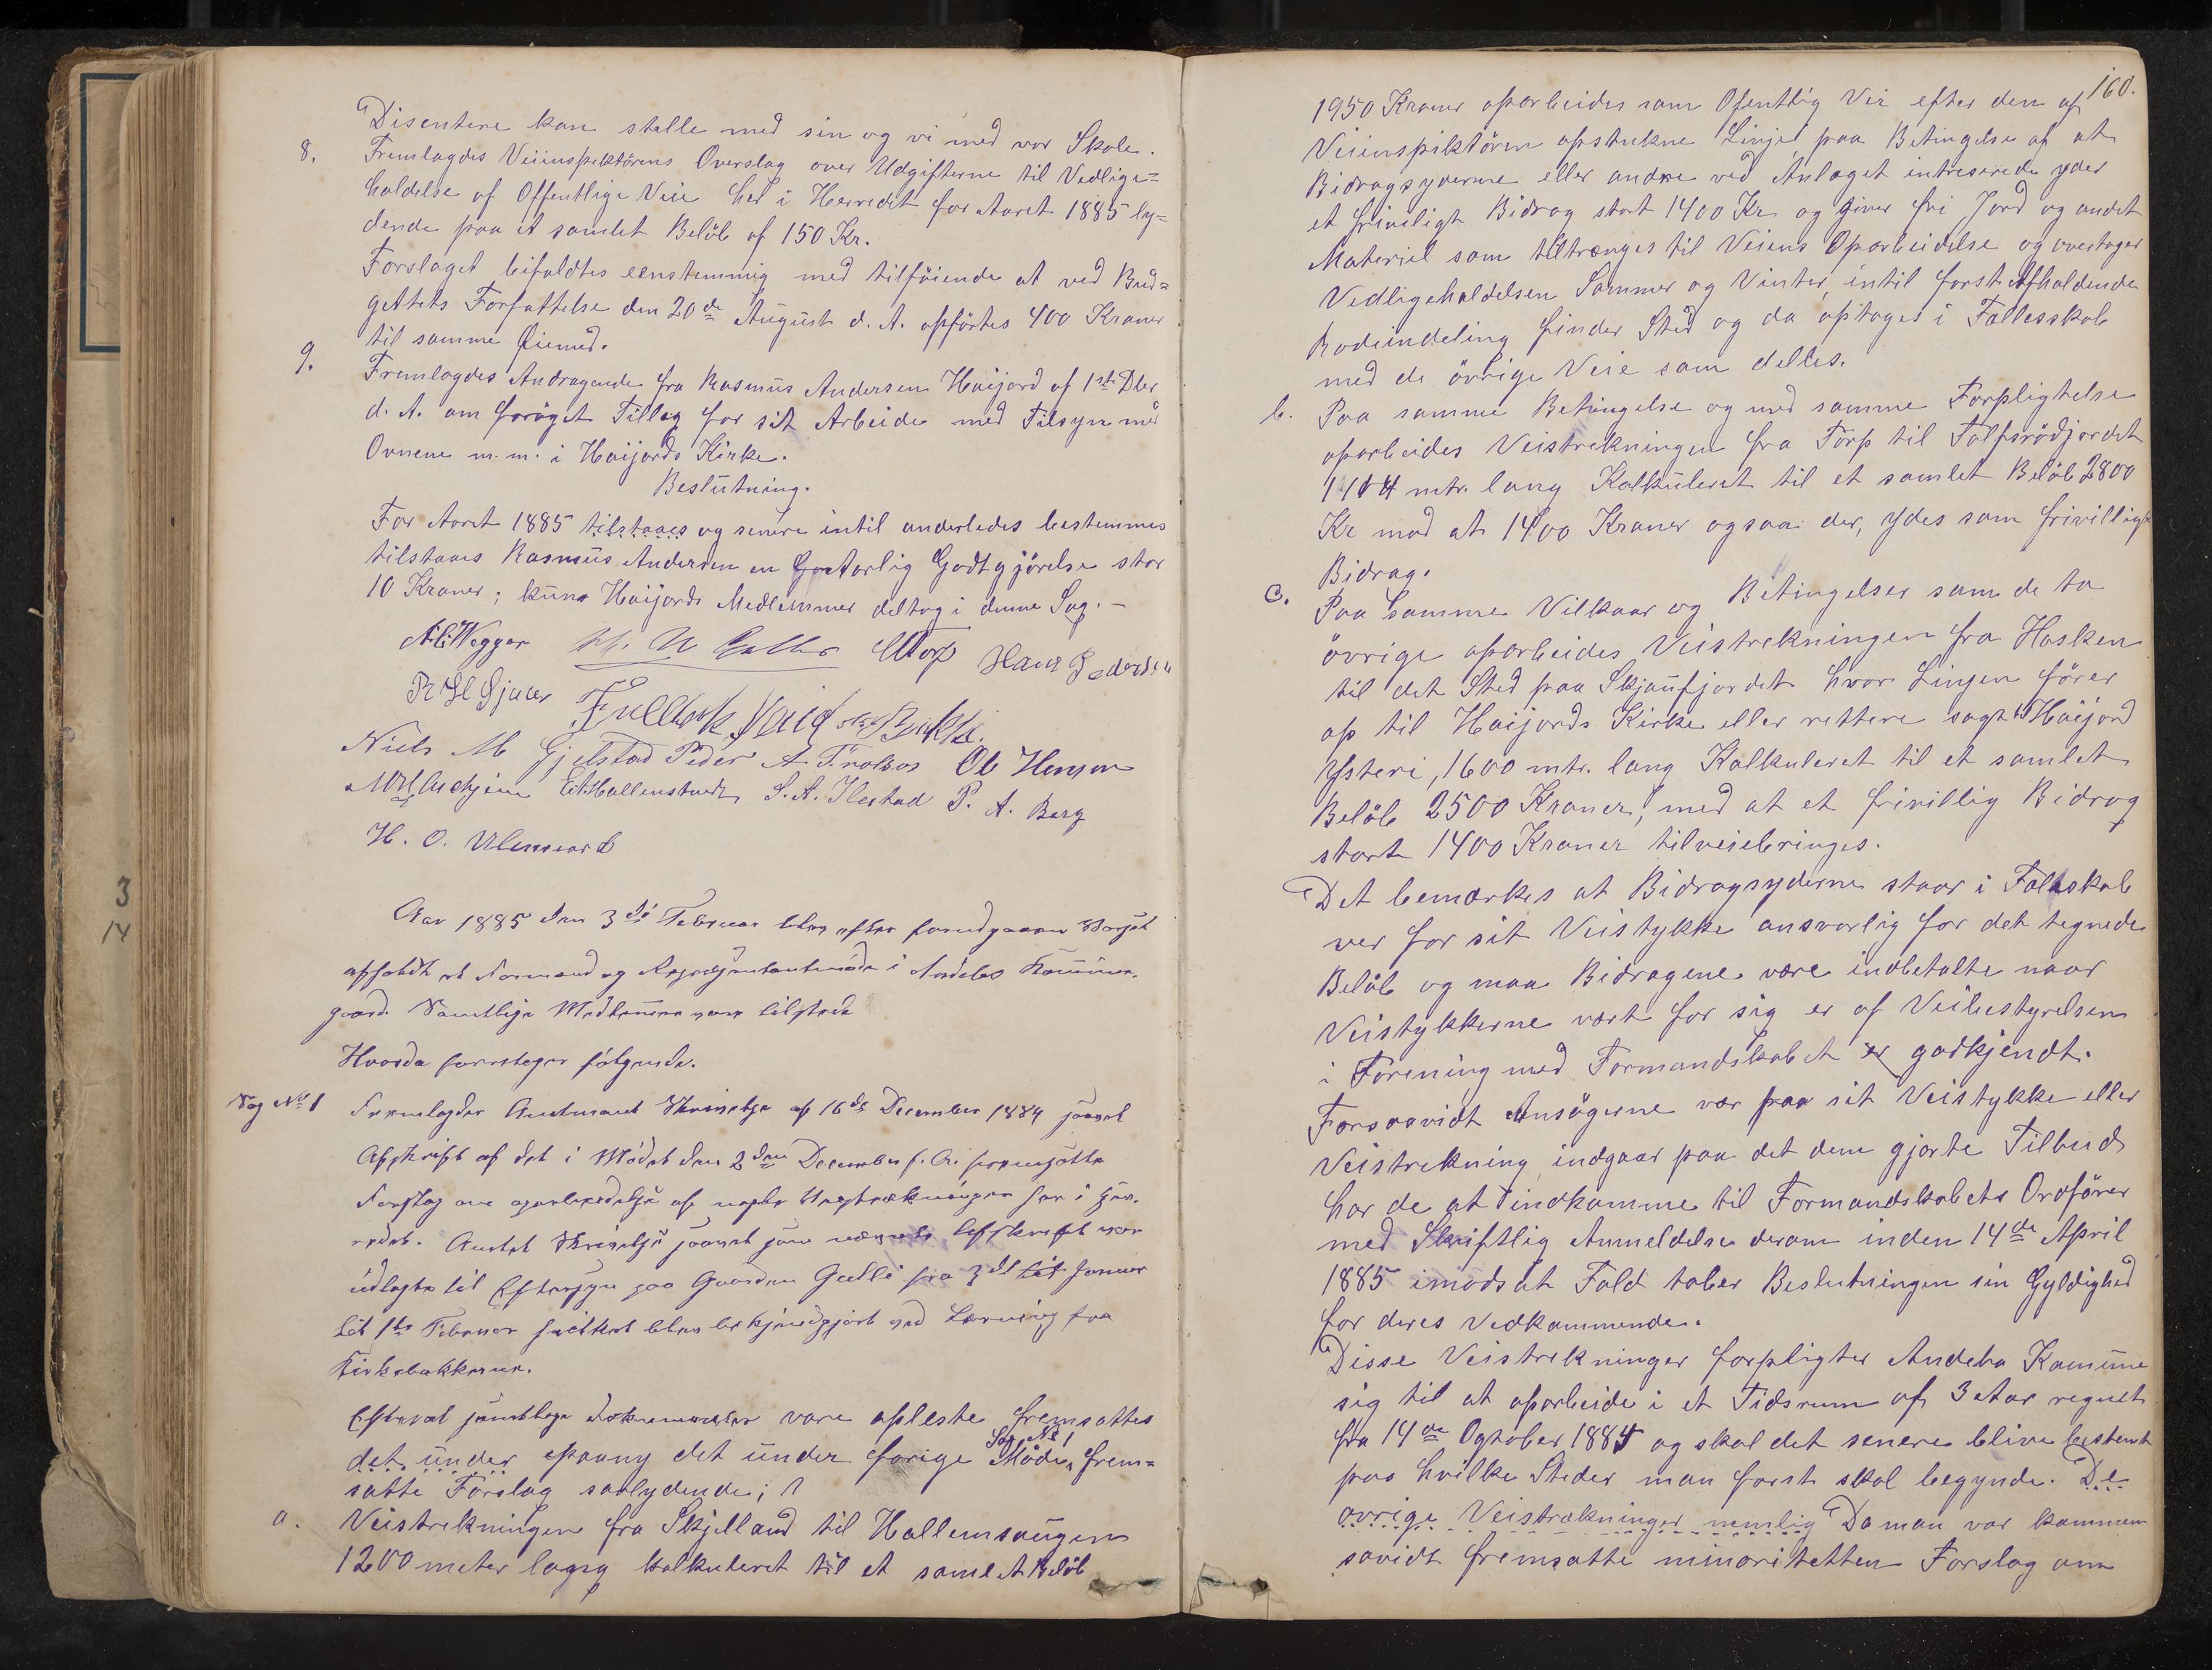 Disentere kan stelle med sin og vi med vor Skole.
8. Fremlagdes Veiinspektörens Overslag over Udgifterne til Vedlige=
holdelse af Offentlige Veie her i Herredet for Aaret 1885 ly=
dende paa et samlet Belöb af 150 Kr.
Forslaget bifaldtes eenstemmig med tilföiende at ved Bud=
gettets Forfattelse den 20de August d. A. opförtes 400 Kroner
til samme Öiemed.
9. Fremlagdes Andragende fra Rasmus Andersen Höijord af 1ste Dbr
d. A. om foröget Tillæg for sit Arbeide med Tilsyn med
Ovnene m. m. i Höijords Kirke.
Beslutning.
For Aaret 1885 tilstaaes og senere intil anderledes bestemmes
tilstaaes Rasmus Andersen en Aarlig Godtgjörelse stor
10 Kroner; kuns Höijords Medlemmer deltog i denne Sag. –
Hans Pedersen
Niels M Gjelstad Peder A. Trolsos Ole Hensen
S. A. Ilestad P. A. Berg
H. O.
Aar 1885 den 3die Februar blev efter foregaaende Varsel
afholdt et Formand og Repræsentantmöde i Andebo Kommune-
gaard. Samtlige Medlemmer vare tilstede
Hvorda foretoges fölgende.
Sag No 1 Fremlagdes Amtmand Skrivelse af 16de December 1884 samt
Afskrift af det i Mödet den 2den December f. A. fremsatte
Forslag om oparbeidelse af nogle Veistrækninger her i Her-
redet. Amtets Skrivelse samt nævnte Afskrift var
udlagte til Eftersyn paa Gaarden Gulli fra 3de Januar
til 1ste Februar hvilket blev bekjendtgjort ved Læsning fra
Kirkebakkerne.
Efterat samtlige Dokumenter vare opleste fremsattes
det under epaany det under forige Möde, Sag No 1 frem=
satte Forslag saalydende;
a. Veistrekningen fra Skjelland til Hallemsaugen
1200 meter lagng kalkuleret til et samlet Belöb
160.
1950 Kroner oparbeides som Ofentlig Vei efter den af
Veiinspiktören opstukne Linje, paa Betingelse af at
Bidragsyderne eller andre ved Anlæget intreserede yder
et friviligt Bidrag stort 1400 Kr og giver fri Jord og andet
Materiel som tiltrænges til Veiens Oparbeidelse og overtager
Vedligeholdelsen Sommer og Vinter, intil först Afholdende
Rodeindeling finder Sted og da optages i Fællesskab
med de övrige Veie som deltes.
b. Paa samme Betingelse og med samme Forpligtelse
oparbeides Veistrekningen fra Torp til Tolfsrödjordet
mtr. lang Kalkuleret til et samlet Belöb 2800
Kr mod at 1400 Kroner ogsaa der, ydes som frivilligt
Bidrag.
c. Paa samme Vilkaar og Betingelser som de to
övrige oparbeides Veistrekningen fra Hasken
til det Sted paa Skjaufjordet hvor Linjen förer
op til Höijords Kirke eller rettere sagt Höijord
Ysteri, 1600 mtr. lang Kalkuleret til et samlet
Belöb 2500 Kroner, med at et frivillig Bidrag
stort 1400 Kroner tilveiebringes.
Det bemærkes at Bidragsyderne staar i Fælleskab
ver for sit Veistykke ansvarlig for det tegnede
Belöb og maa Bidragene være indbetalte naar
Veistykkerne vært for sig er af Veibestyrelsen
i Forening med Formandskabet er godkjendt.
Forsaavidt Ansögerne vær paa sit Veistykke eller
Veistrekning indgaar paa det dem gjorte Tilbud
har de at indkomme til Formandskabets Ordförer
med Skriftlig Anmeldelse derom inden 14de April
1885 imodsat Fald taber Beslutningen sin Gyldighed
for deres Vedkommende.
Disse Veistrekninger forpligter Andebu Komune
sig til at oparbeide i et Tidsrum af 3 Aar regnet
fra 14de Ogtober 1885 og skal det senere blive bestemt
paa hvilke Steder man først skal begynde. De
ovrige Veistrækninger nemlig Da man var kommen
saavidt fremsatte minoritetten Forslag om
3
14